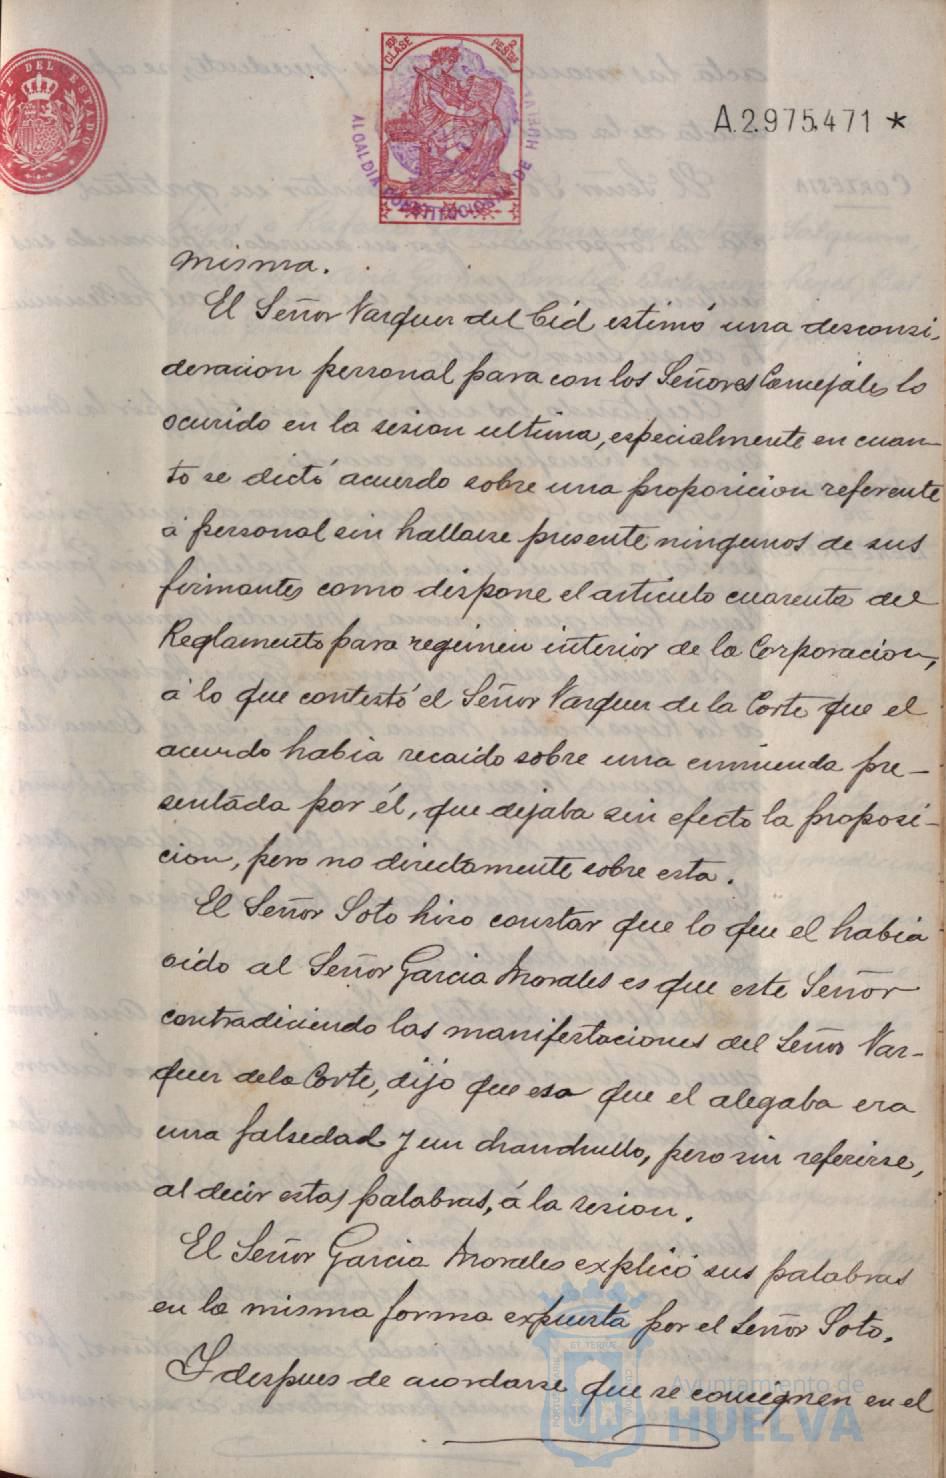 TIMBRE DEL ESTADO
10ª CLASE
2 PESETAS
ALCALDIA CONSTITUCIONAL DE HUELVA
A.2.975.471 *
misma.
El Señor Vazquez del Cid estimó una desconsi-
deracion personal para con los Señores Concejales lo
ocurrido en la sesion ultima, especialmente en cuan-
to se dictó acuerdo sobre una proposicion referente
á personal sin hallarse presente ningunos de sus
firmantes como dispone el articulo cuarenta del
Reglamento para regimen interior de la Corporacion,
á lo que contestó el Señor Vazquez de la Corte que el
acuerdo habia recaido sobre una enmienda pre-
sentada por él, que dejaba sin efecto la proposi-
cion, pero no directamente sobre esta.
El Señor Soto hizo constar que lo que el habia
oido al Señor Garcia Morales es que este Señor
contradiciendo las manifestaciones del Señor Vaz-
quez de la Corte, dijo que eso que el alegaba era
una falsedad y un chanchullo, pero sin referirse,
al decir estas palabras, á la sesion.
El Señor Garcia Morales explicó sus palabras
en la misma forma expuesta por el Señor Soto.
Y despues de acordarse que se consignen en el
Ayuntamiento de
HUELVA